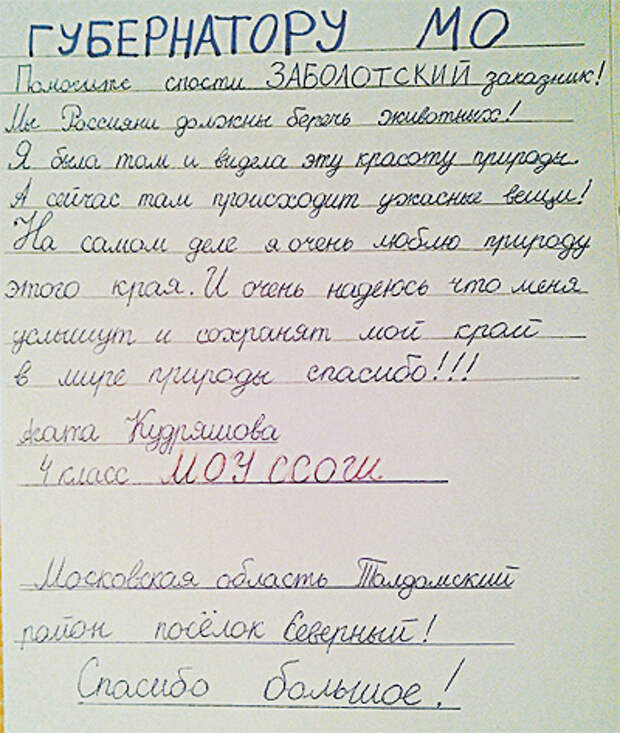 ГУБЕРНАТОРУ МО
Помогите спасти ЗАБОЛОТСКИЙ заказник!
Мы Россияни должны беречь животных!
Я была там и видела эту красоту природы.
А сейчас там происходит ужасные вещи!
На самом деле я очень люблю природу
этого края. И очень надеюсь что меня
услышут и сохранят мой край
в мире природы спасибо!!!
Ката Кудряшова
4 класс МОУ ССОШ
Московская область Талдомский
район посёлок Северный!
Спасибо большое!